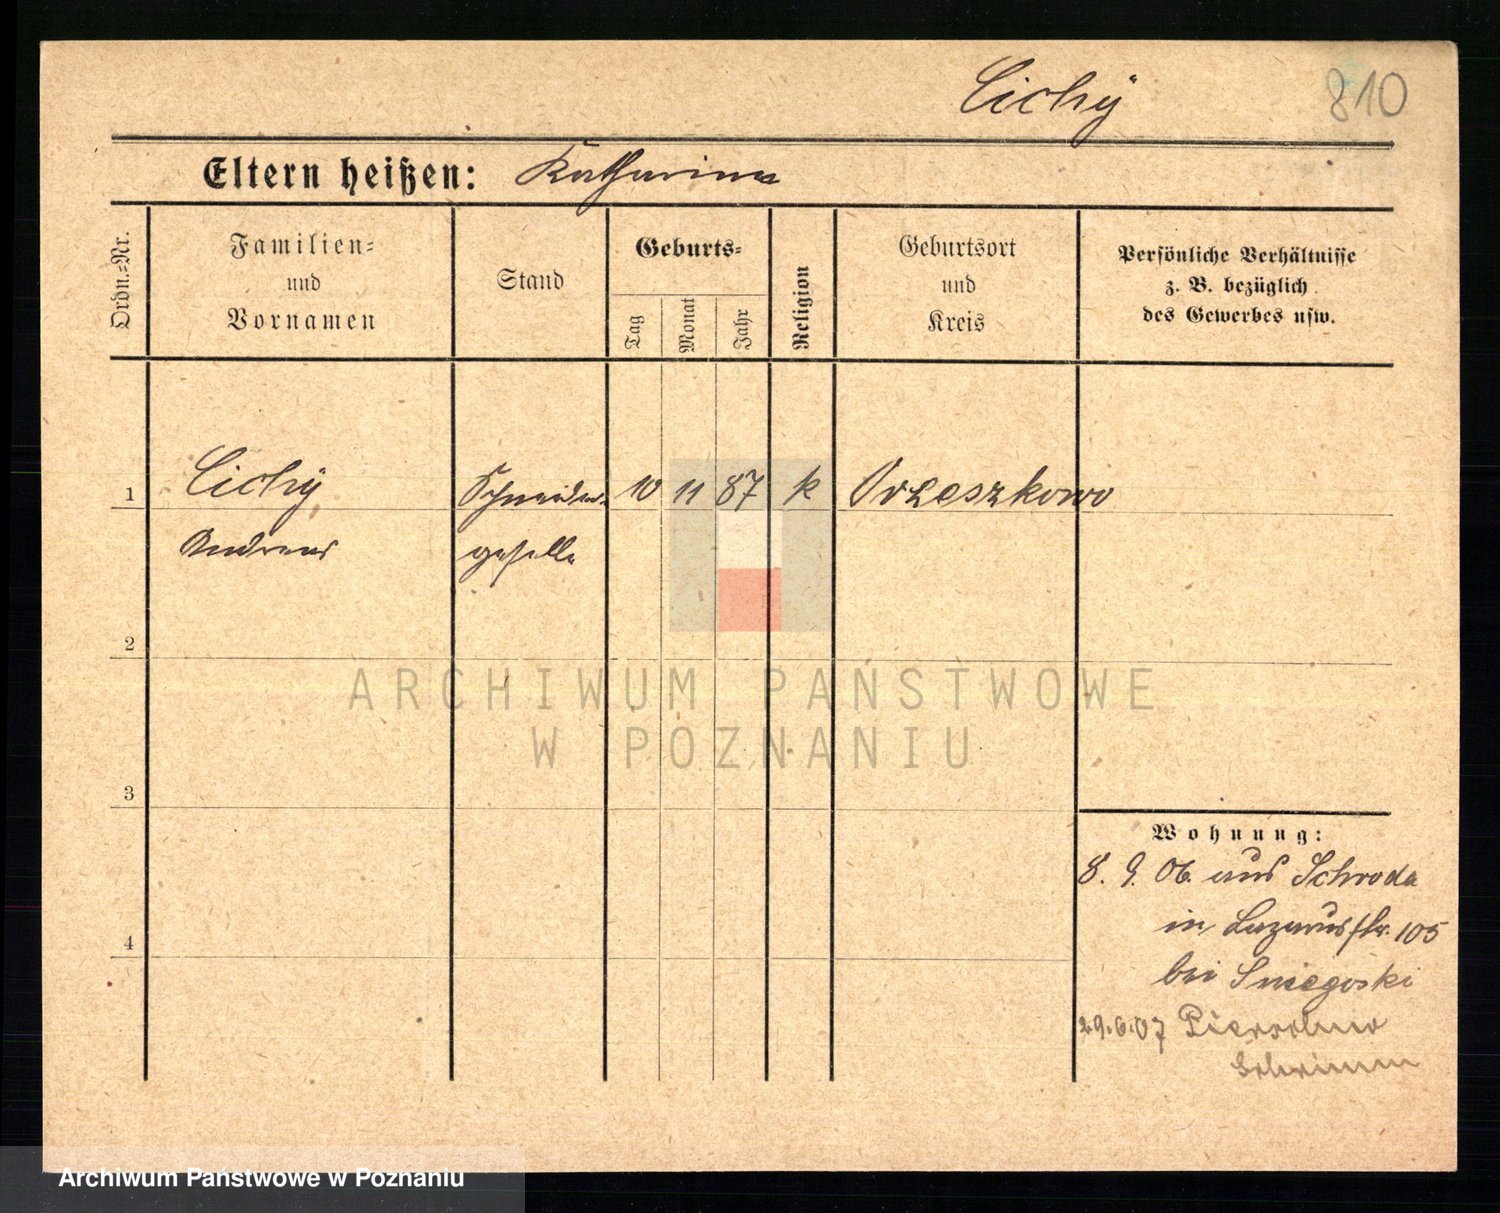 Cichÿ
810
Eltern heißen: Katharina
Ordn.-Nr.
Familien-
und
Vornamen
Stand
Geburts-
Tag
Monat
Jahr
Religion
Geburtsort
und
Kreis
Persönliche Verhältnisse
z. B. bezüglich
des Gewerbes usw.
1 Cichÿ Schneider- 10 11 87 k Orzeszkowo
Andreas geselle
2
ARCHIWUM PAŃSTWOWE
W POZNANIU
3
Wohnung:
8. 9. 06. aus Schroda
in Lazarusstr. 105
bei Sniegoski
4
29.6.07
Schrimm
Archiwum Państwowe w Poznaniu